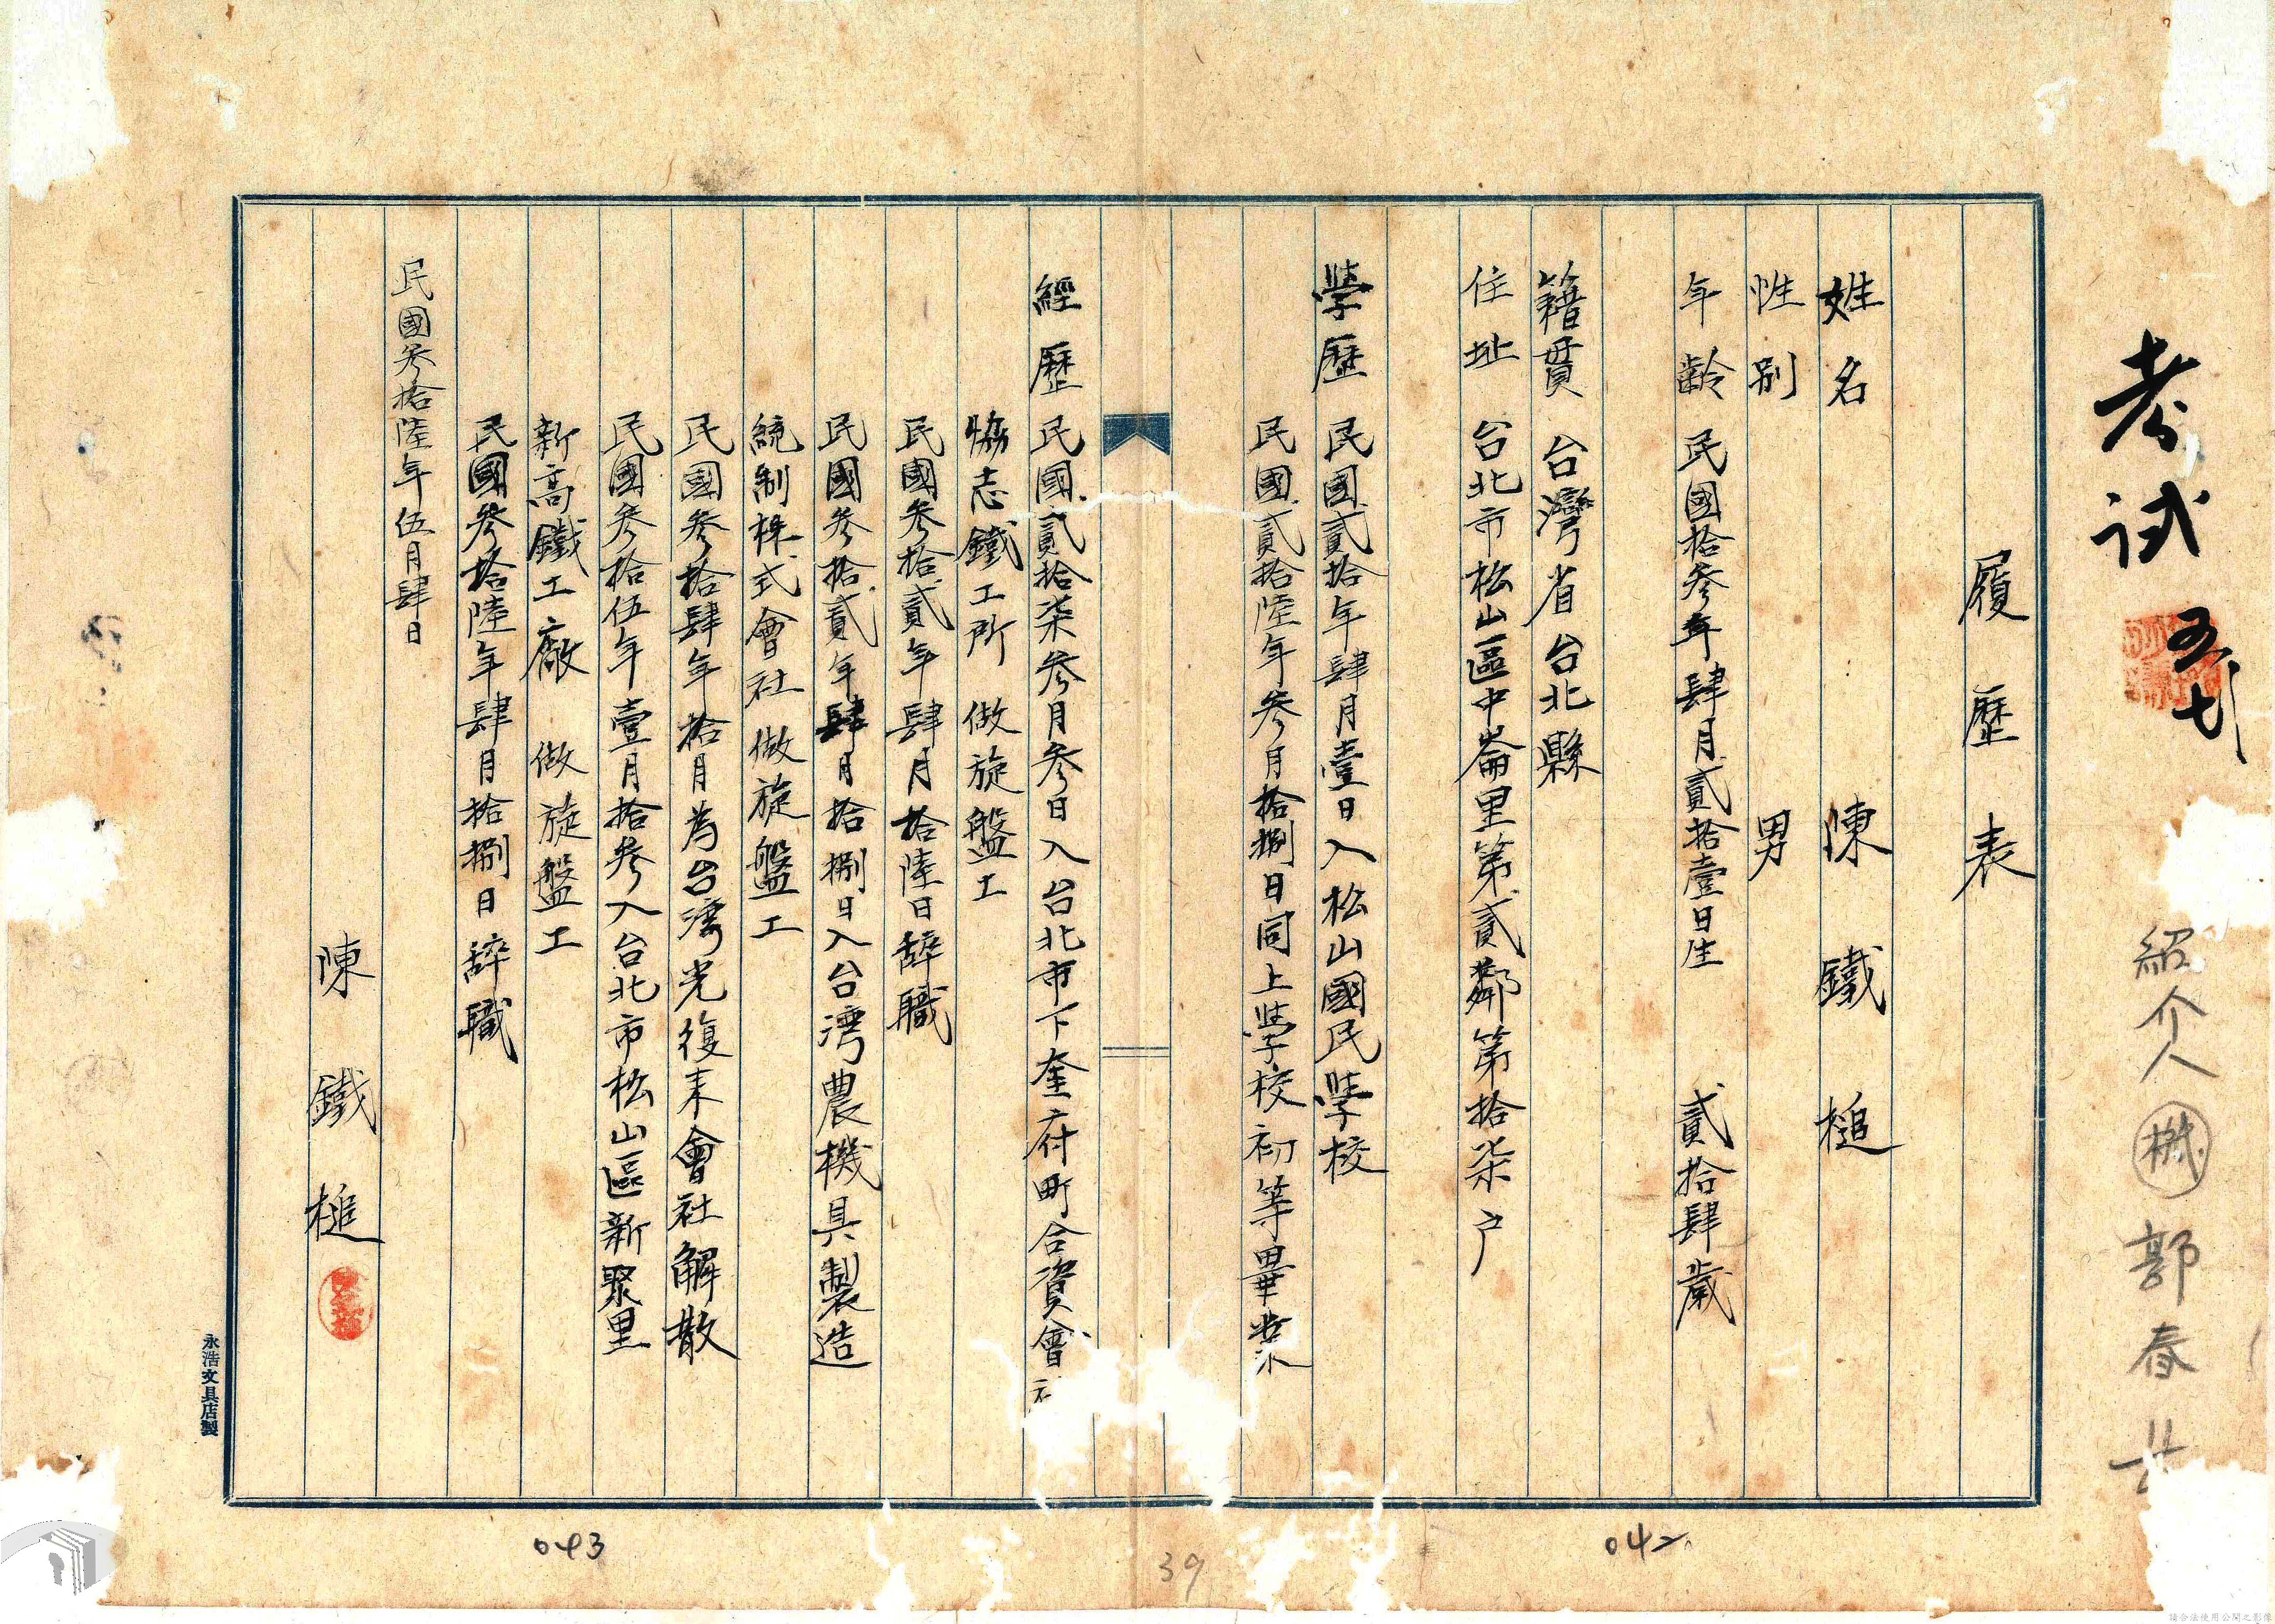 考試
五 七
紹介人 機 郭春
履歷表
姓名 陳鐵槌
性別 男
年齡 民國拾參年肆月貳拾壹日生 貳拾肆歲
籍貫 台灣省台北縣
住址 台北市松山區中崙里第貳鄰第拾柒户
學歷 民國貳拾年肆月壹日入松山國民學校
民國貳拾陸年參月拾捌日同上學校初等畢業
經歷 民國貳拾柒參月參日入台北市下奎府町合資會社
協志鐵工所 做旋盤工
民國參拾貳年肆月拾陸日辭職
民國參拾貳年肆月拾捌日入台灣農機具製造
統制株式會社 做旋盤工
民國參拾肆年拾月為台灣光復來會社解散
民國參拾伍年壹月拾參入台北市松山區新聚里
新高鐵工廠 做旋盤工
民國參拾陸年肆月拾捌日辭職
民國參拾陸年伍月肆日
陳鐵槌
永浩文具店製
042
39
043
請合法使用公開之影像